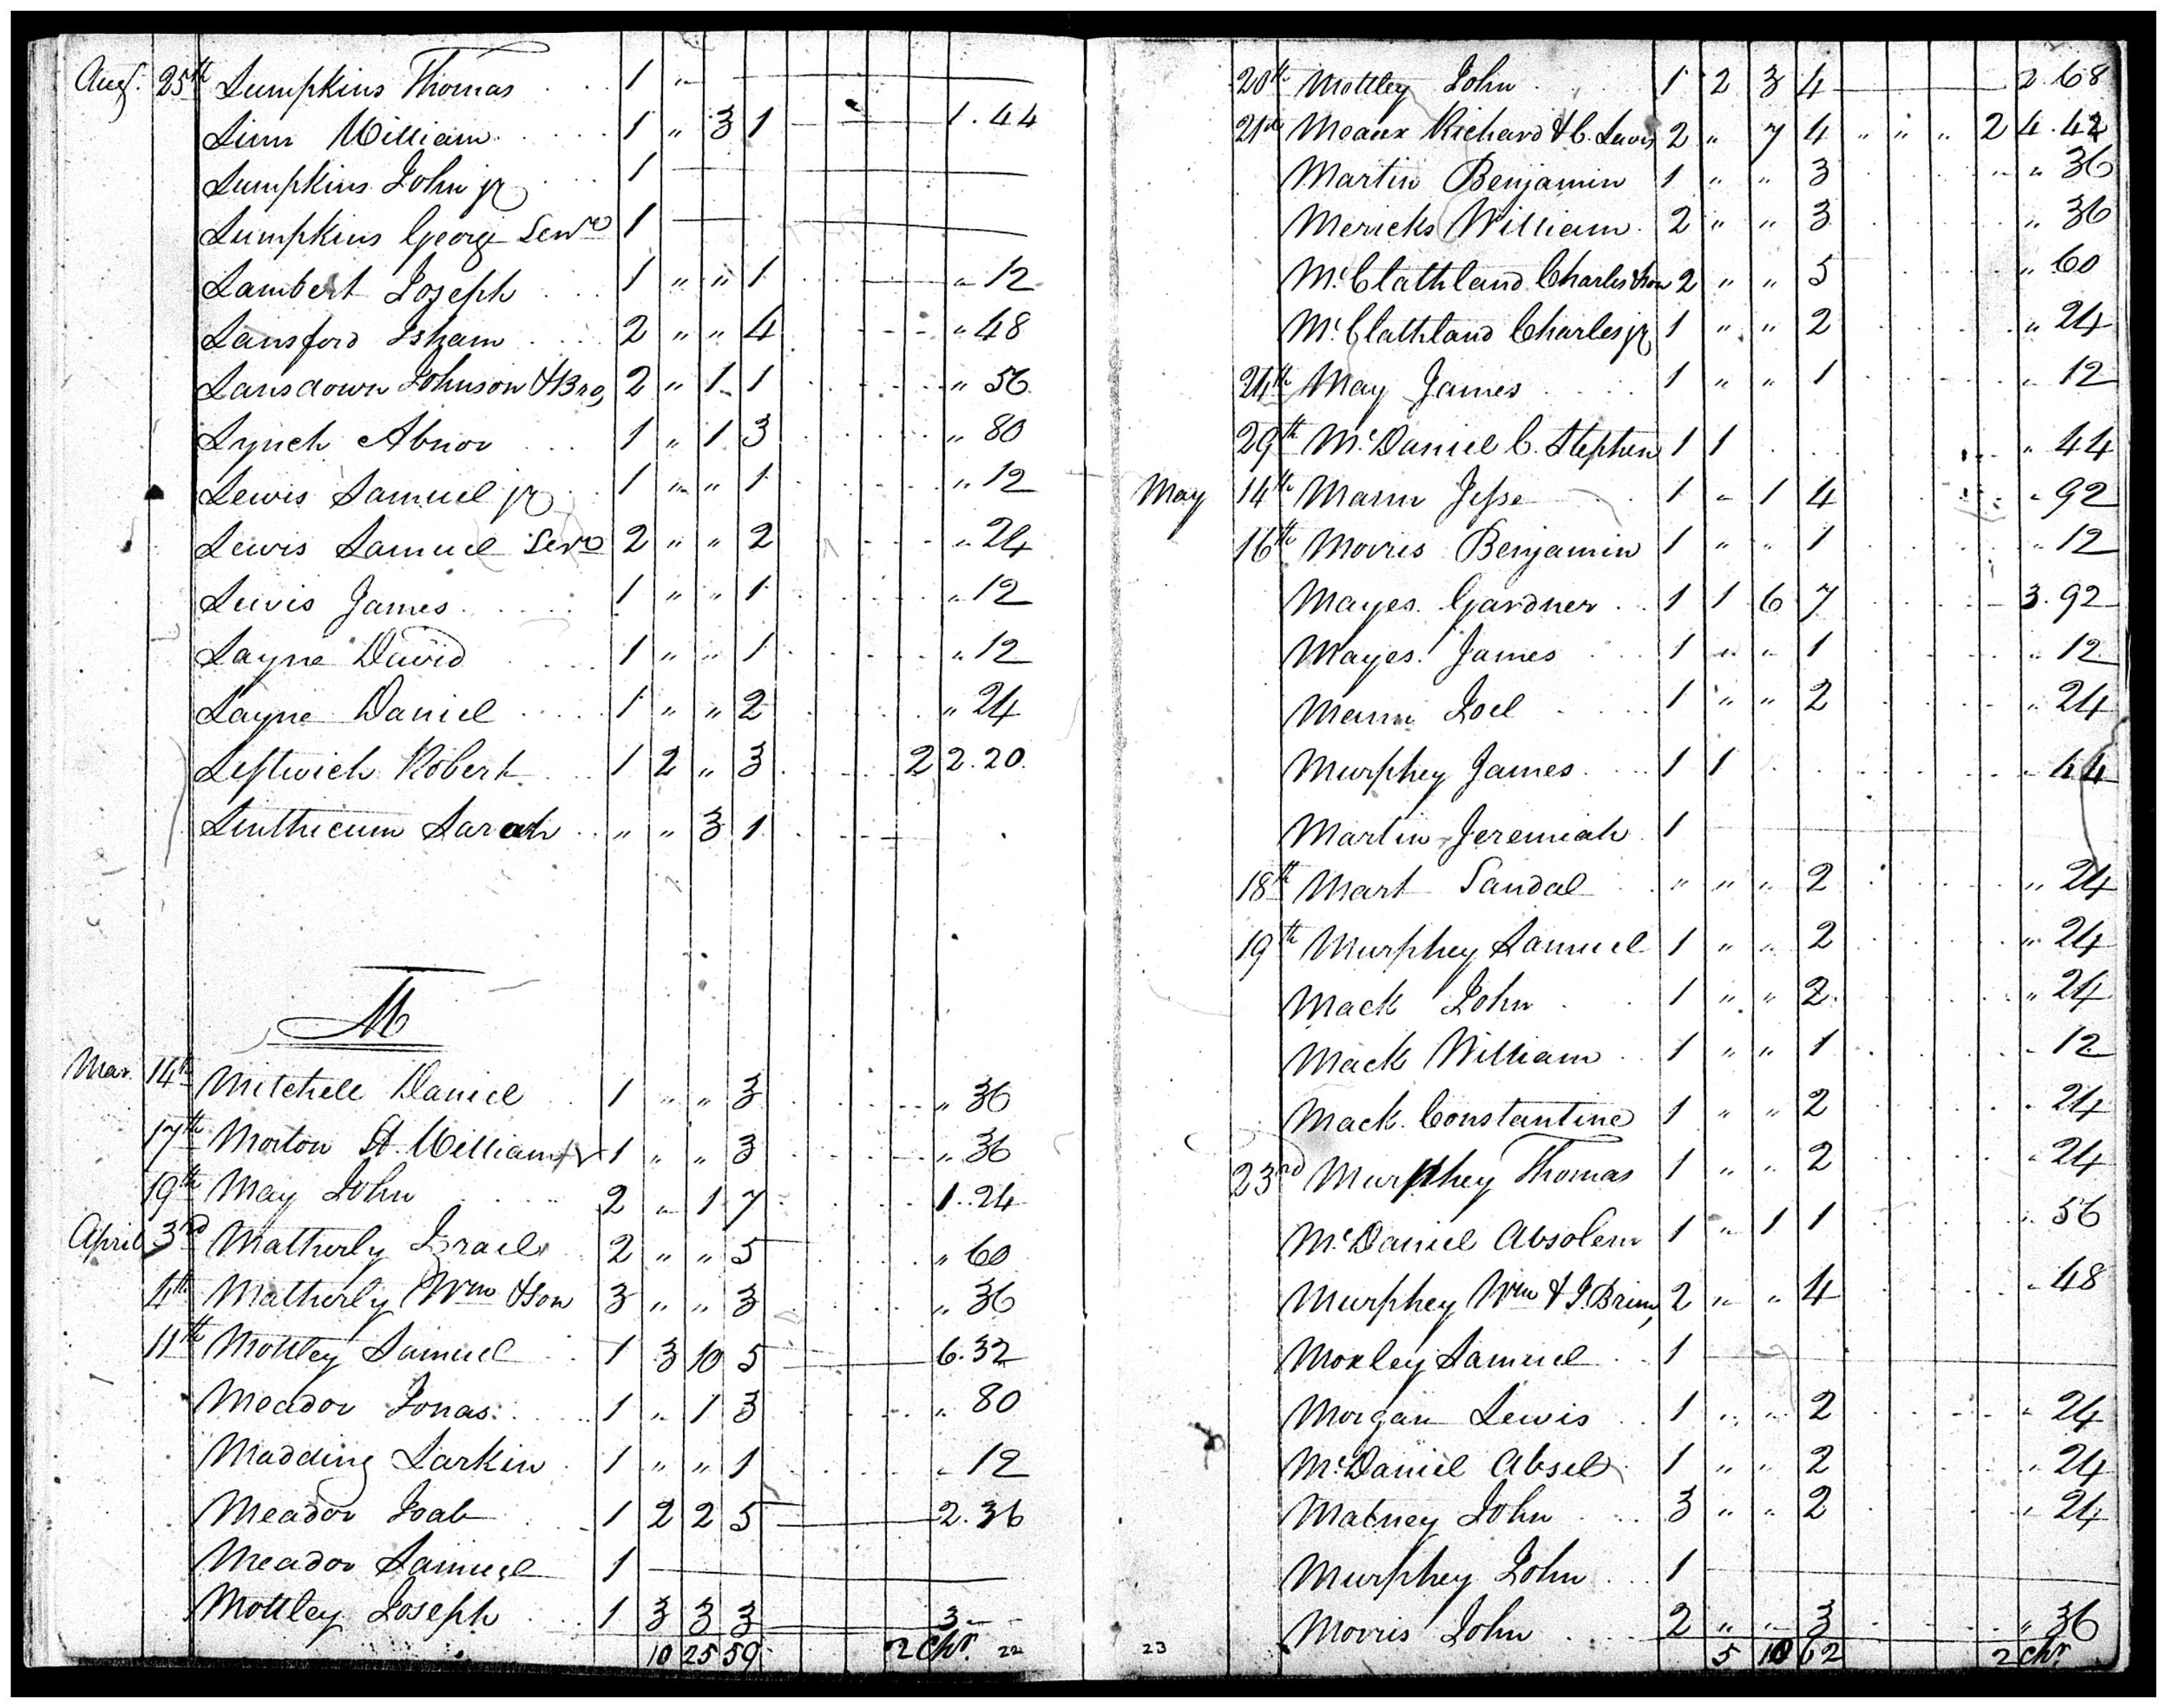 Aug. 25th Lumpkins Thomas 1 "
Linn William 1 " 3 1 1.44
Lumpkins John jr 1
Lumpkins George Senr 1
Lambert Joseph 1 " " 1 " 12
Lansford Isham 2 " " 4 " 48
Lansdown Johnson & Bro, 2 " 1 1 " 56
Lynch Abnor 1 " 1 3 " 80
Lewis Samuel jr 1 " " 1 " 12
Lewis Samuel Senr 2 " " 2 " 24
Lewis James 1 " " 1 " 12
Layne David 1 " " 1 " 12
Layne Daniel 1 " " 2 " 24
Leftwich Robert 1 2 " 3 2 2.20
Linthicum Sarah " " 3 1
M
Mar. 14th Mitchell Daniel 1 " " 3 " 36
17th Morton St. William 1 " " 3 " 36
19th May John 2 " 1 7 1.24
April 3rd Matherly Israel 2 " " 5 " 60
4th Matherly Wm & Son 3 " " 3 " 36
11th Mottley Samuel 1 3 10 5 6.32
Meador Jonas 1 " 1 3 " 80
Madding Larkin 1 " " 1 " 12
Meador Joab 1 2 2 5 2.36
Meador Samuel 1
Mottley Joseph 1 3 3 3 3
10 25 59 2 Chr. 22
20th Mottley John 1 2 3 4 2.68
21st Meaux Richard & C. Lewis 2 " 7 4 " " " 2 4.42
Martin Benjamin 1 " " 3 " 36
Mericks William 2 " " 3 " 36
McClathland Charles & son 2 " " 5 " 60
McClathland Charles jr 1 " " 2 " 24
24th May James 1 " " 1 " 12
29th McDaniel C. Stephen 1 1 " 44
May 14th Mann Jesse 1 " 1 4 " 92
16th Morris Benjamin 1 " " 1 " 12
Mayes Gardner 1 1 6 7 3.92
Mayes James 1 " " 1 " 12
Mann Joel 1 " " 2 " 24
Murphey James 1 1 " 44
Martin Jeremiah 1
18th Mart Sandal " " " 2 " 24
19th Murphey Samuel 1 " " 2 " 24
Mack John 1 " " 2 " 24
Mack William 1 " " 1 " 12
Mack Constantine 1 " " 2 " 24
23rd Murphey Thomas 1 " " 2 " 24
McDaniel Absolem 1 " 1 1 " 56
Murphey Wm & J. Brim, 2 " " 4 " 48
Moxley Samuel 1
Morgan Lewis 1 " " 2 " 24
McDaniel Absel 1 " " 2 " 24
Matney John 3 " " 2 " 24
Murphey John 1
Morris John 2 " " 3 " 36
23 5 18 62 2 Chr.